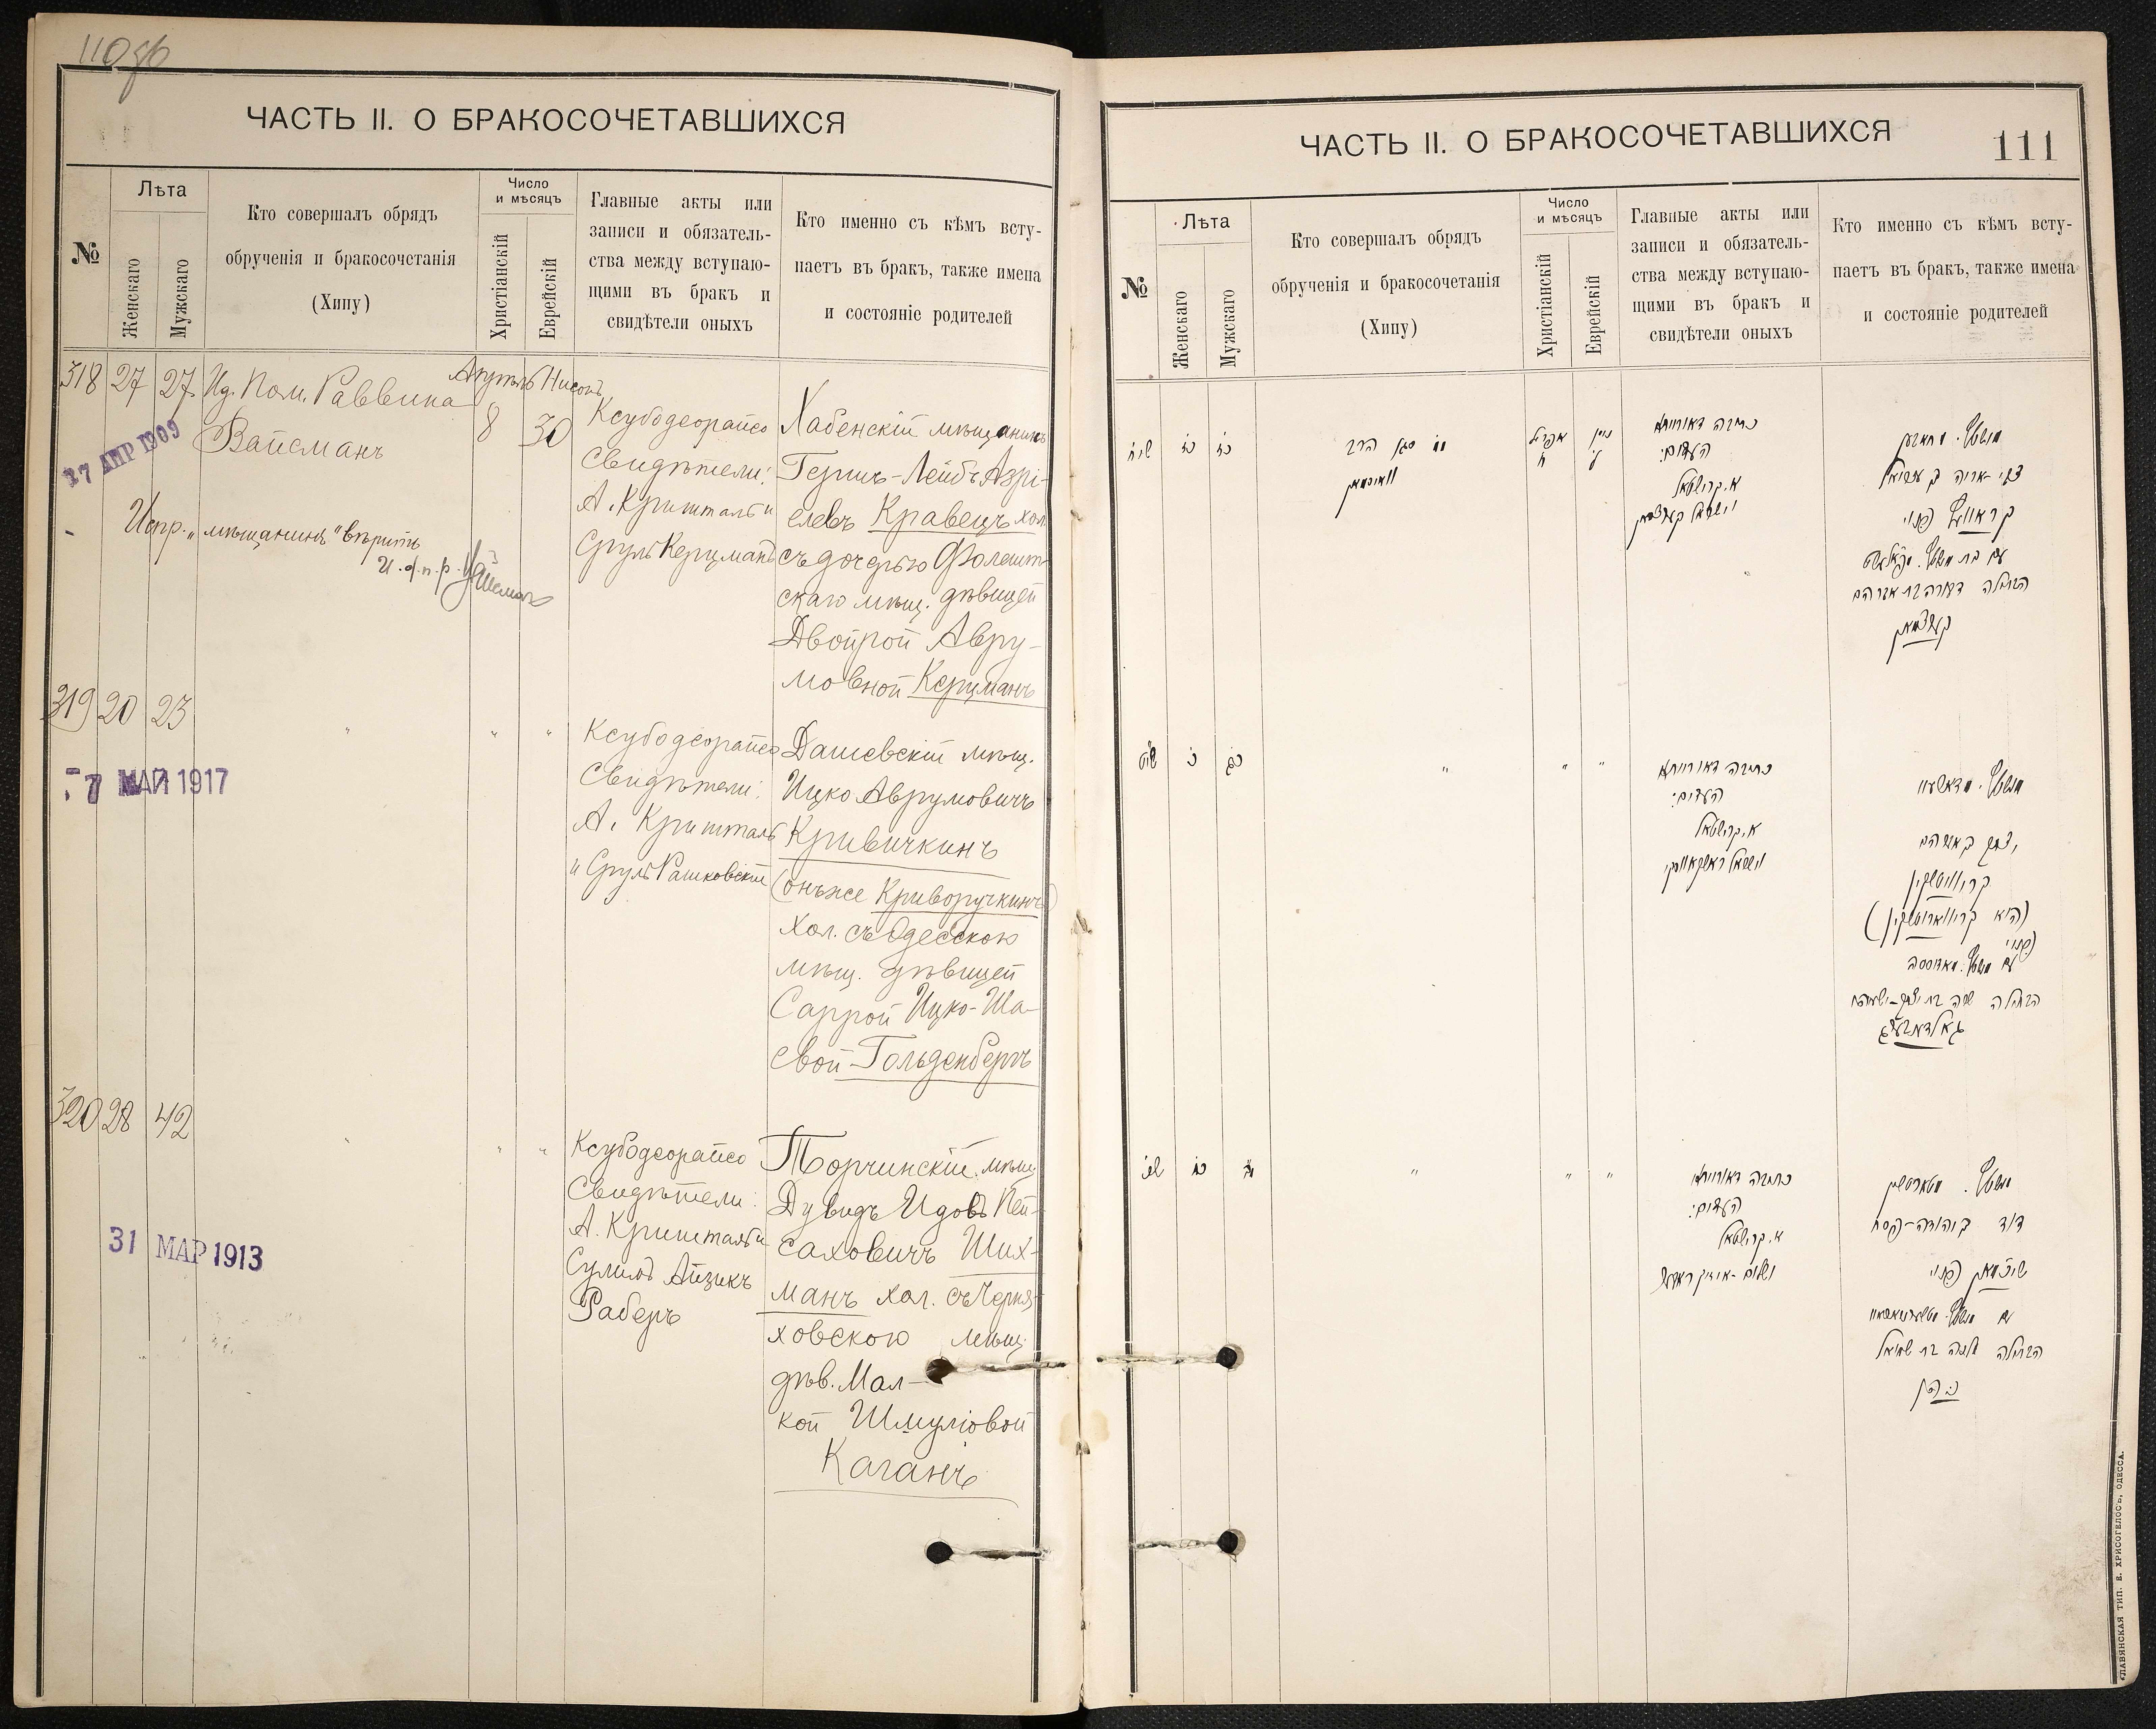 110 об
ЧАСТЬ II. О БРАКОСОЧЕТАВШИХСЯ
№
Лѣта
Женскаго
Мужскаго
Кто совершалъ обрядъ
обрученія и бракосочетанія
(Хипу)
Число
и мѣсяцъ
Христіанскій
Еврейскій
Главные акты или
записи и обязатель-
ства между вступаю-
щими въ бракъ и
свидѣтели оныхъ
Кто именно съ кѣмъ всту-
паетъ въ бракъ, также имена
и состояніе родителей
318 27 27
Ид. Пом. Раввина
Вайсманъ
Апрель Нисонъ
8 30
Ксубодеорайсо
Свидѣтели:
А. Кришталь и
Сруль Керцманъ
Хабенскій мѣщанинъ
Гершъ-Лейбъ Азрі-
елевъ Кравецъ хол.
съ дочерью Фолешт-
скаго мѣщ. дѣвицей
Двойрой Авру-
мовной Керцманъ
27 АПР 1909
Испр. „мѣщанинъ" вѣрить
И.о.п.р. Вайсманъ
319 20 23
" " "
Ксубодеорайсо
Свидѣтели:
А. Кришталь
и Сруль Рашковскій
Дашевскій мѣщ.
Ицко Аврумовичъ
Кривичкинъ
(онъ же Криворучкинъ)
хол. съ Одесскою
мѣщ. дѣвицей
Саррой Ицко-Ша-
евой Гольденбергъ
7 МАЙ 1917
320 28 42
" " "
Ксубодеорайсо
Свидѣтели:
А. Кришталь и
Сулимъ Айзикъ
Раберъ
Торчинскій мѣщ.
Дувидъ Идовъ Пей-
саховичъ Ших-
манъ хол. съ Черня-
ховскою мѣщ.
дѣв. Мал-
кой Шмуліовой
Каганъ
31 МАР 1913
ЧАСТЬ II. О БРАКОСОЧЕТАВШИХСЯ
111
№
Лѣта
Женскаго
Мужскаго
Кто совершалъ обрядъ
обрученія и бракосочетанія
(Хипу)
Число
и мѣсяцъ
Христіанскій
Еврейскій
Главные акты или
записи и обязатель-
ства между вступаю-
щими въ бракъ и
свидѣтели оныхъ
Кто именно съ кѣмъ всту-
паетъ въ бракъ, также имена
и состояніе родителей
שיח כז כז
סגן הרב
ווייסמאן
אפריל
ח
ניסן
ל
כתובה דאורייתא
העדים:
א. קרישטאל
וישראל קערצמאן
צבי-אריה בן עזריאל
קראוועץ פנוי
הבתולה דבורה בת אברהם
קערצמאן
שיט כ כג
" " "
כתובה דאורייתא
העדים:
א. קרישטאל
וישראל ראשקאווסקי
יצחק בן אברהם
קריוויטשקין
הבתולה שרה בת יצחק-ישעיה
גאלדענבערג
שכ כח מב
" " "
כתובה דאורייתא
העדים:
א. קרישטאל
ושלום-אייזיק ראבער
דוד בן יהודה-פסח
שיכמאן פנוי
הבתולה מלכה בת שמואל
כהן
СЛАВЯНСКАЯ ТИП. Е. ХРИСОГЕЛОСЪ, ОДЕССА.